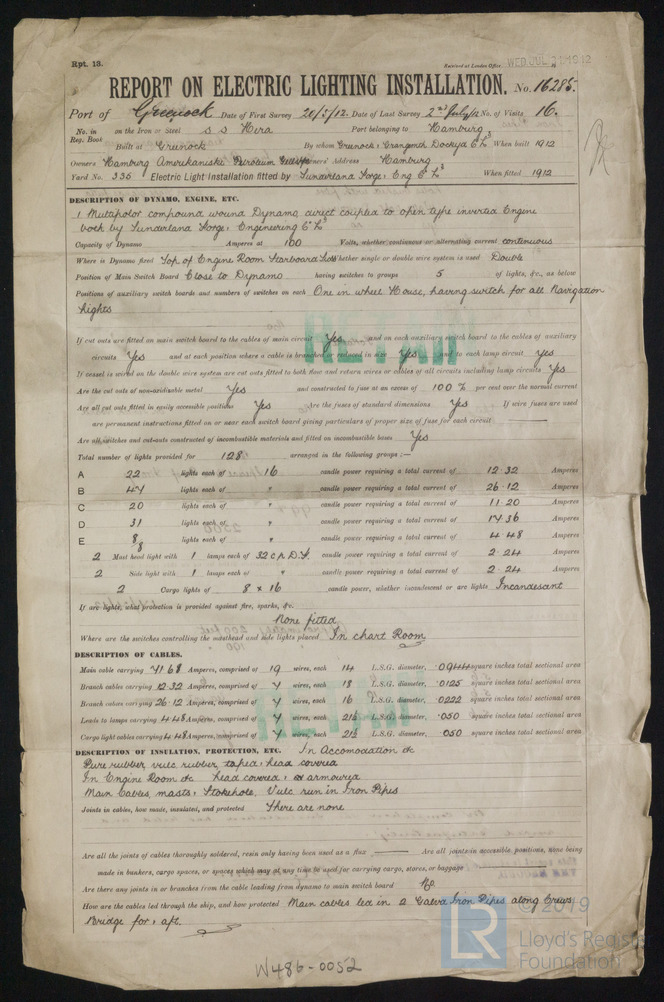 Rpt. 13.
Received at London Office WED. JUL 1912
REPORT ON ELECTRIC LIGHTING INSTALLATION. No. 16285.
Port of Greenock Date of First Survey 20/5/12. Date of Last Survey 2nd July/12 No. of Visits 16.
No. in Reg. Book on the Iron or Steel s s Hera Port belonging to Hamburg
Built at Greenock By whom Greenock & Grangemth Dockyd Co Ld When built 1912
Owners Hamburg Amerikanishe Petroleum Owners' Address Hamburg
Yard No. 335 Electric Light Installation fitted by Sunderland Forge & Eng Co Ld When fitted 1912
DESCRIPTION OF DYNAMO, ENGINE, ETC.
1 Multipolor compound wound Dynamo direct coupled to open type inverted Engine
both by Sunderland Forge & Engineering Co Ld
Capacity of Dynamo Amperes at 100 Volts, whether continuous or alternating current continuous
Where is Dynamo fixed Top of Engine Room Starboard Side Whether single or double wire system is used Double
Position of Main Switch Board Close to Dynamo having switches to groups 5 of lights, &c., as below
Positions of auxiliary switch boards and numbers of switches on each One in wheel House, having switch for all Navigation
lights
If cut outs are fitted on main switch board to the cables of main circuit Yes and on each auxiliary switch board to the cables of auxiliary
circuits Yes and at each position where a cable is branched or reduced in size Yes and to each lamp circuit Yes
If vessel is wired on the double wire system are cut outs fitted to both flow and return wires or cables of all circuits including lamp circuits Yes
Are the cut outs of non-oxidizable metal Yes and constructed to fuse at an excess of 100 % per cent over the normal current
Are all cut outs fitted in easily accessible positions Yes Are the fuses of standard dimensions Yes If wire fuses are used
are permanent instructions fitted on or near each switch board giving particulars of proper size of fuse for each circuit
Are all switches and cut-outs constructed of incombustible materials and fitted on incombustible bases Yes
Total number of lights provided for 128 arranged in the following groups :—
A 22 lights each of 16 candle power requiring a total current of 12.32 Amperes
B 47 lights each of " candle power requiring a total current of 26.12 Amperes
C 20 lights each of " candle power requiring a total current of 11.20 Amperes
D 31 lights each of " candle power requiring a total current of 17.36 Amperes
E 8 lights each of " candle power requiring a total current of 4.48 Amperes
2 Mast head light with 1 lamps each of 32 c.p. D.F. candle power requiring a total current of 2.24 Amperes
2 Side light with 1 lamps each of " candle power requiring a total current of 2.24 Amperes
2 Cargo lights of 8 x 16 candle power, whether incandescent or arc lights Incandesant
If arc lights, what protection is provided against fire, sparks, &c.
None fitted
Where are the switches controlling the masthead and side lights placed In chart Room
DESCRIPTION OF CABLES.
Main cable carrying 71.68 Amperes, comprised of 19 wires, each 14 L.S.G. diameter, .0944 square inches total sectional area
Branch cables carrying 12.32 Amperes, comprised of 7 wires, each 18 L.S.G. diameter, .0125 square inches total sectional area
Branch cables carrying 26.12 Amperes, comprised of 7 wires, each 16 L.S.G. diameter, .0222 square inches total sectional area
Leads to lamps carrying 4.48 Amperes, comprised of 7 wires, each 21½ L.S.G. diameter, .050 square inches total sectional area
Cargo light cables carrying 4.48 Amperes, comprised of 7 wires, each 21½ L.S.G. diameter, .050 square inches total sectional area
DESCRIPTION OF INSULATION, PROTECTION, ETC. In Accomodation &c
Pure rubber, vulc rubber, taped & lead covered
In Engine Room &c lead covered & armoured
Main Cables, masts & Stokehole, Vulc run in Iron Pipes
Joints in cables, how made, insulated, and protected There are none
Are all the joints of cables thoroughly soldered, resin only having been used as a flux Are all joints in accessible positions, none being
made in bunkers, cargo spaces, or spaces which may at any time be used for carrying cargo, stores, or baggage
Are there any joints in or branches from the cable leading from dynamo to main switch board No
How are the cables led through the ship, and how protected Main cables led in 2 Galvd Iron Pipes along
Bridge for & aft.
RETAIN
RETAIN
W486-0052
© 2019
LR
Lloyd's Register
Foundation